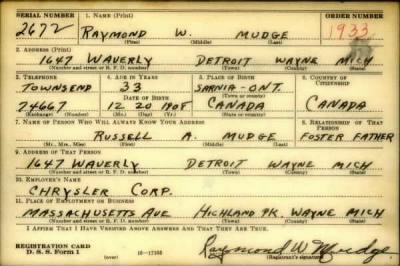 SERIAL NUMBER 1. NAME (Print) ORDER NUMBER
2672 RAYMOND W. MUDGE 1933
(First) (Middle) (Last)
2. ADDRESS (Print)
1647 WAVERLY DETROIT WAYNE MICH
(Number and street or R. F. D. number) (Town) (County) (State)
3. TELEPHONE 4. AGE IN YEARS 5. PLACE OF BIRTH 6. COUNTRY OF CITIZENSHIP
TOWNSEND 33 SARNIA - ONT.
DATE OF BIRTH (Town or county)
74667 12 20 1908 CANADA CANADA
(Mo.) (Day) (Yr.) (State or country)
7. NAME OF PERSON WHO WILL ALWAYS KNOW YOUR ADDRESS 8. RELATIONSHIP OF THAT PERSON
RUSSELL A. MUDGE FOSTER FATHER
(Mr., Mrs., Miss) (First) (Middle) (Last)
9. ADDRESS OF THAT PERSON
1647 WAVERLY DETROIT WAYNE MICH
(Number and street or R. F. D. number) (Town) (County) (State)
10. EMPLOYER'S NAME
CHRYSLER CORP.
11. PLACE OF EMPLOYMENT OR BUSINESS
MASSACHUSETTS AVE HIGHLAND PK. WAYNE MICH
(Number and street or R. F. D. number) (Town) (County) (State)
I AFFIRM THAT I HAVE VERIFIED ABOVE ANSWERS AND THAT THEY ARE TRUE.
REGISTRATION CARD
D. S. S. Form 1 (over) 16-17105 Raymond W Mudge
(Registrant's signature)